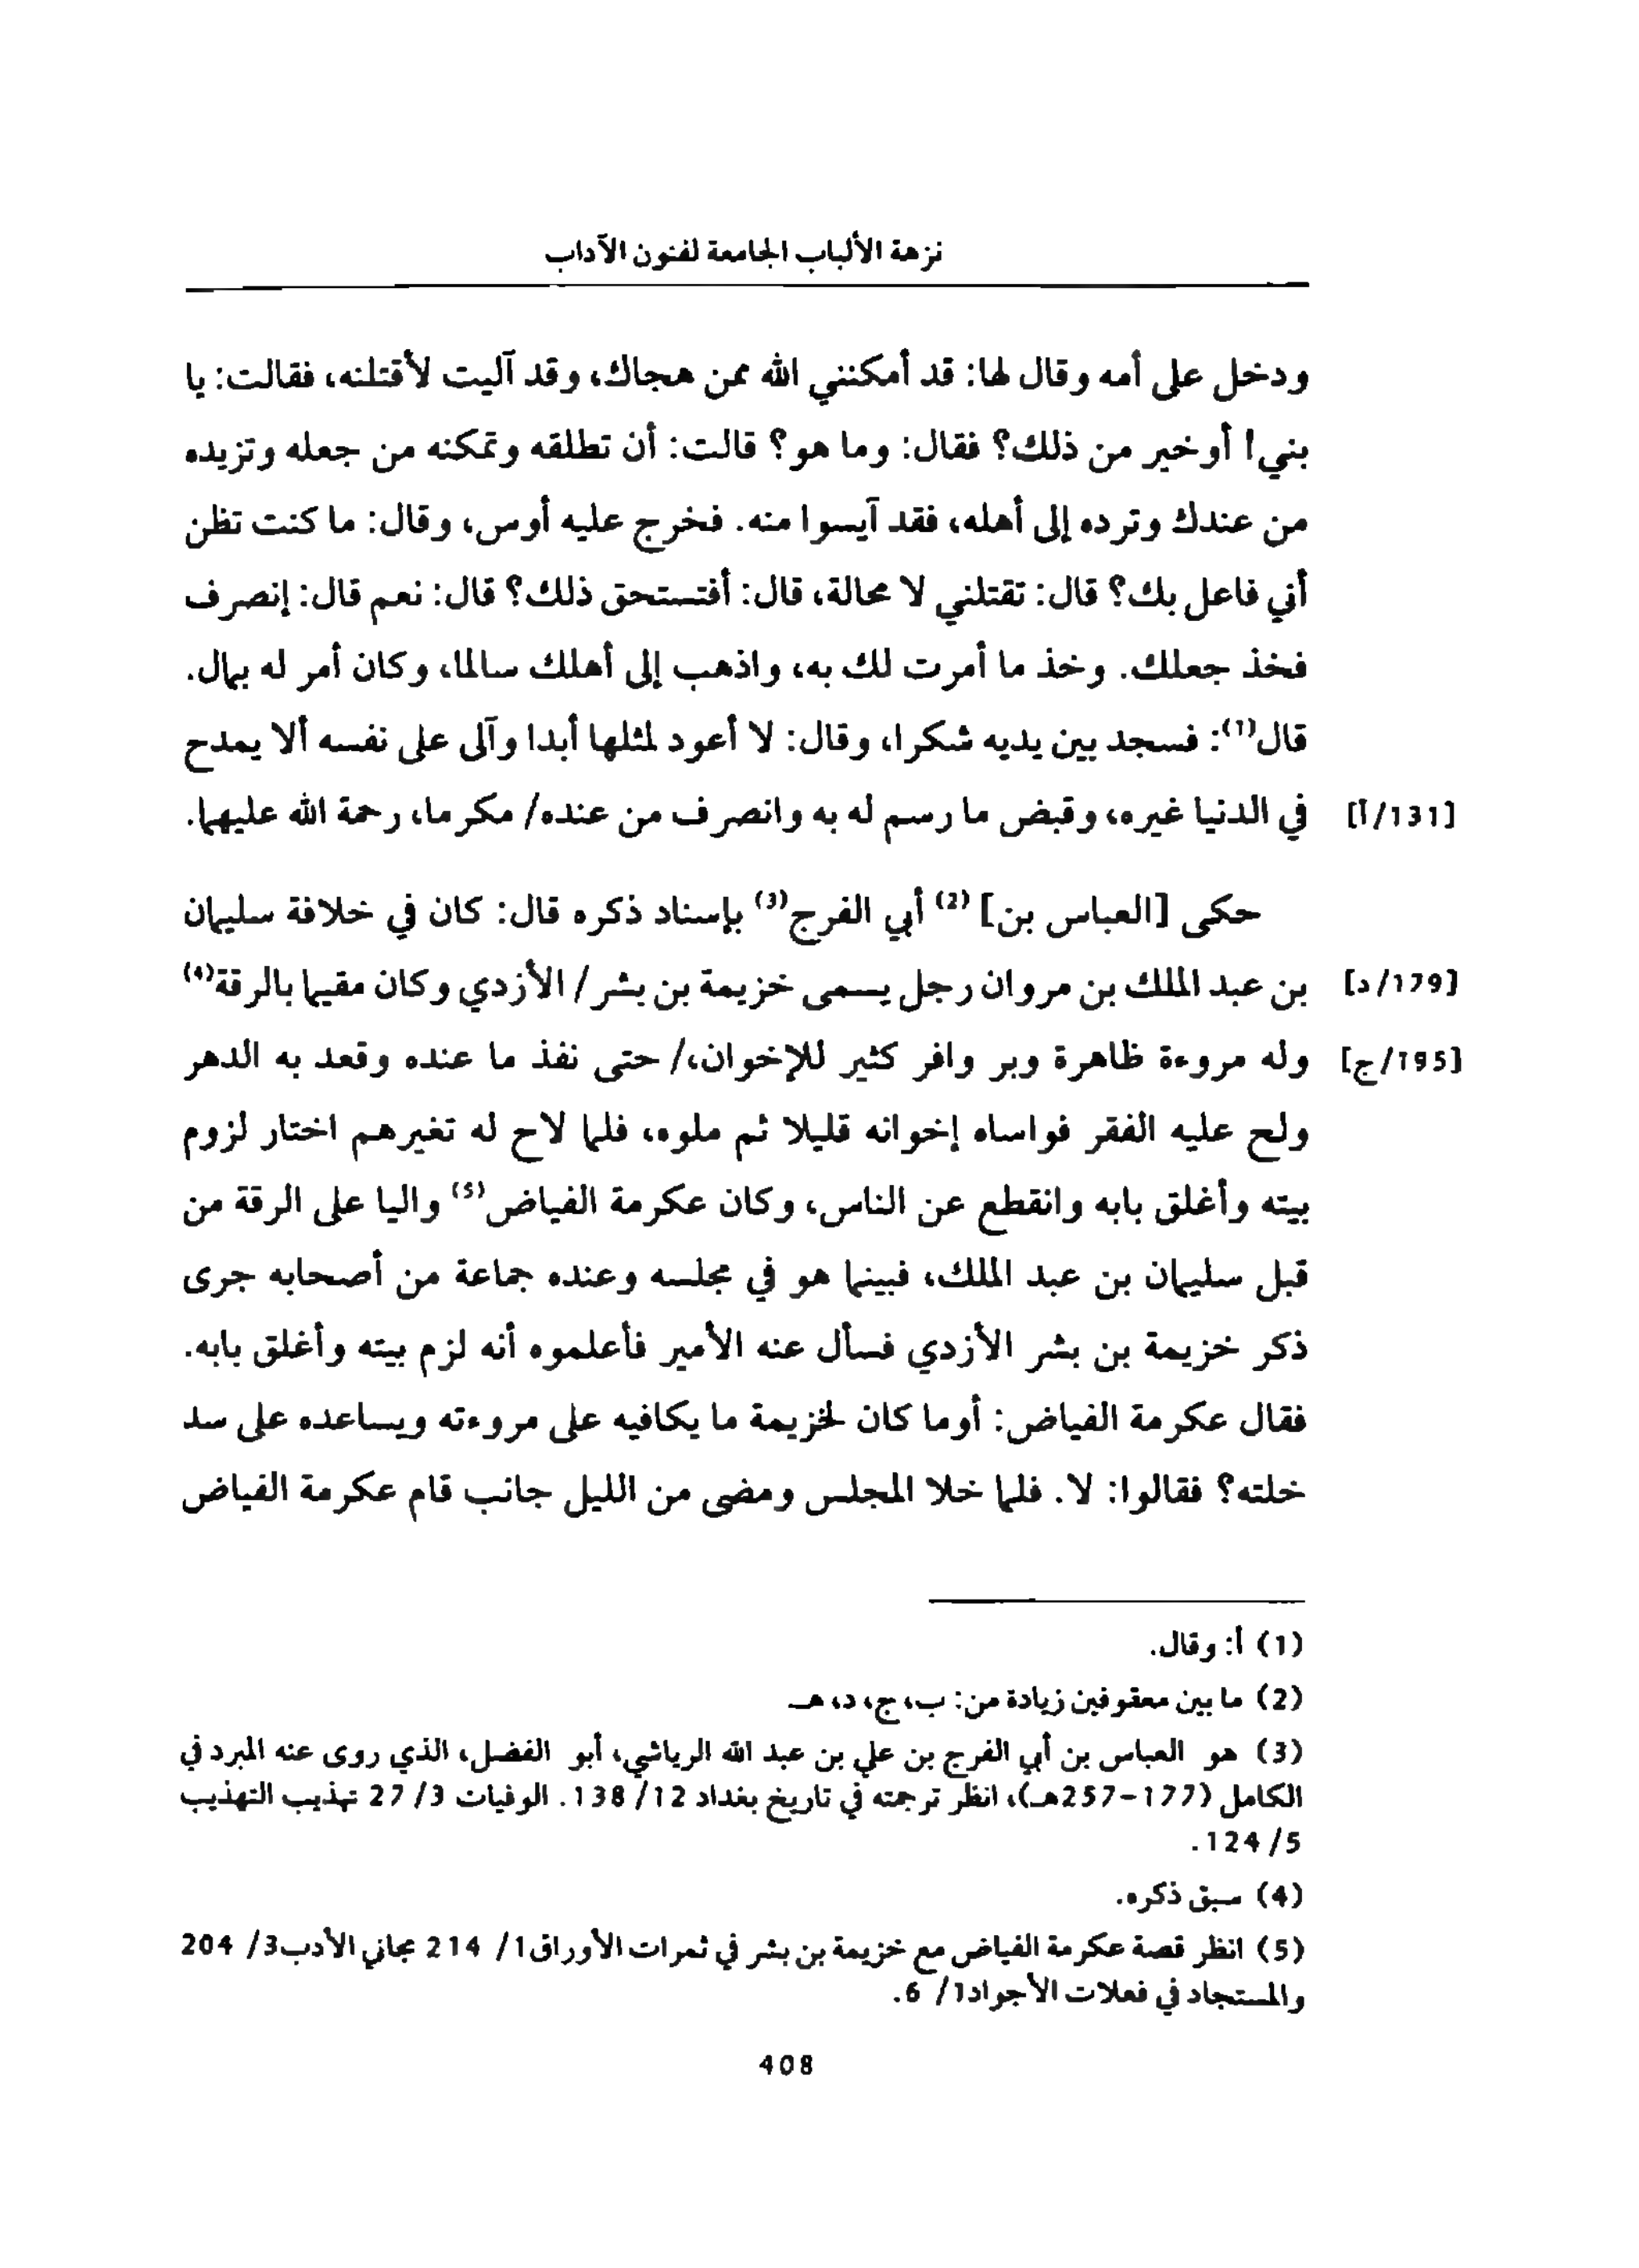 نزهة الألباب الجامعة لفنون الآداب
ودخل على أمه وقال لها: قد أمكنني الله ممن هجاك، وقد آليت لأقتلنه، فقالت: يا
بني! أو خير من ذلك؟ فقال: وما هو؟ قالت: أن تطلقه وتمكنه من جعله وتزيده
من عندك وترده إلى أهله، فقد آيسوا منه. فخرج عليه أوس، وقال: ما كنت تظن
أني فاعل بك؟ قال: تقتلني لا محالة، قال: أفتستحق ذلك؟ قال: نعم قال: إنصرف
فخذ جعلك. وخذ ما أمرت لك به، واذهب إلى أهلك سالما، وكان أمر له بمال.
قال(1): فسجد بين يديه شكرا، وقال: لا أعود لمثلها أبدا وآلى على نفسه ألا يمدح
[131/أ] في الدنيا غيره، وقبض ما رسم له به وانصرف من عنده/ مكرما، رحمة الله عليهما.
حكى [العباس بن] (2) أبي الفرج(3) بإسناد ذكره قال: كان في خلافة سليمان
[179/د] بن عبد الملك بن مروان رجل يسمى خزيمة بن بشر/ الأزدي وكان مقيما بالرقة(4)
[195/ج] وله مروءة ظاهرة وبر وافر كثير للإخوان،/ حتى نفذ ما عنده وقعد به الدهر
ولح عليه الفقر فواساه إخوانه قليلا ثم ملوه، فلما لاح له تغيرهم اختار لزوم
بيته وأغلق بابه وانقطع عن الناس، وكان عكرمة الفياض(5) واليا على الرقة من
قبل سليمان بن عبد الملك، فبينما هو في مجلسه وعنده جماعة من أصحابه جرى
ذكر خزيمة بن بشر الأزدي فسأل عنه الأمير فأعلموه أنه لزم بيته وأغلق بابه.
فقال عكرمة الفياض: أوما كان لخزيمة ما يكافيه على مروءته ويساعده على سد
خلته؟ فقالوا: لا. فلما خلا المجلس ومضى من الليل جانب قام عكرمة الفياض
(1) أ: وقال.
(2) ما بين معقوفين زيادة من: ب، ج، د، هـ
(3) هو العباس بن أبي الفرج بن علي بن عبد الله الرياشي، أبو الفضل، الذي روى عنه المبرد في
الكامل (177-257هـ)، انظر ترجمته في تاريخ بغداد 12/ 138. الوفيات 3/ 27 تهذيب التهذيب
5/ 124.
(4) سبق ذكره.
(5) انظر قصة عكرمة الفياض مع خزيمة بن بشر في ثمرات الأوراق1/ 214 مجاني الأدب3/ 204
والمستجاد في فعلات الأجواد1/ 6.
408